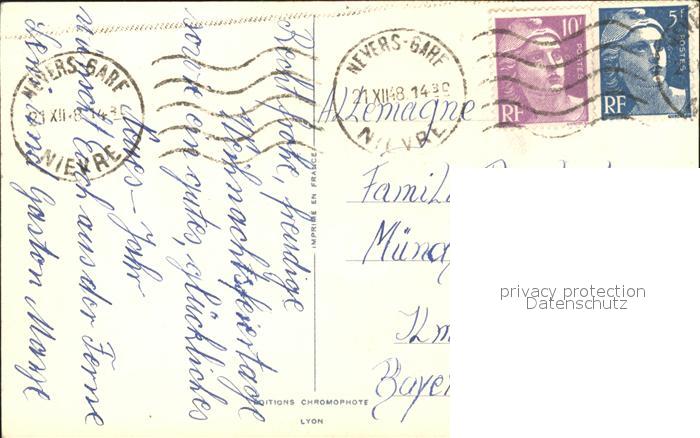 Recht frohe, freudige
Weihnachtsfeiertage
sowie ein gutes, glückliches
Neues-Jahr
wünscht Euch aus der Ferne
Gaston
NEVERS-GARE
21 XII 8 14 30
NIEVRE
NEVERS-GARE
21 XII 48 14 30
NIEVRE
10F
POSTES
RF
5F
POSTES
RF
Allemagne
Famil
Münc
Bayer
IMPRIMÉ EN FRANCE
EDITIONS CHROMOPHOTE
LYON
privacy protection
Datenschutz